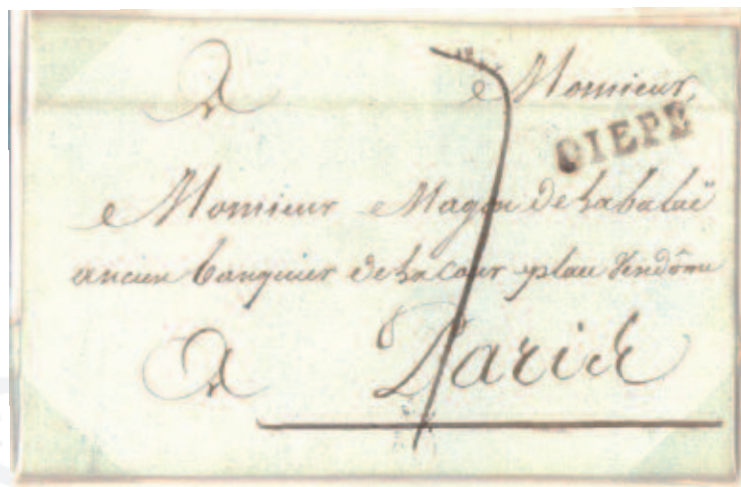 A Monsieur,
DIEPE
Monsieur Magon de Labalue
ancien banquier de la Cour place Vendôme
A Paris
7